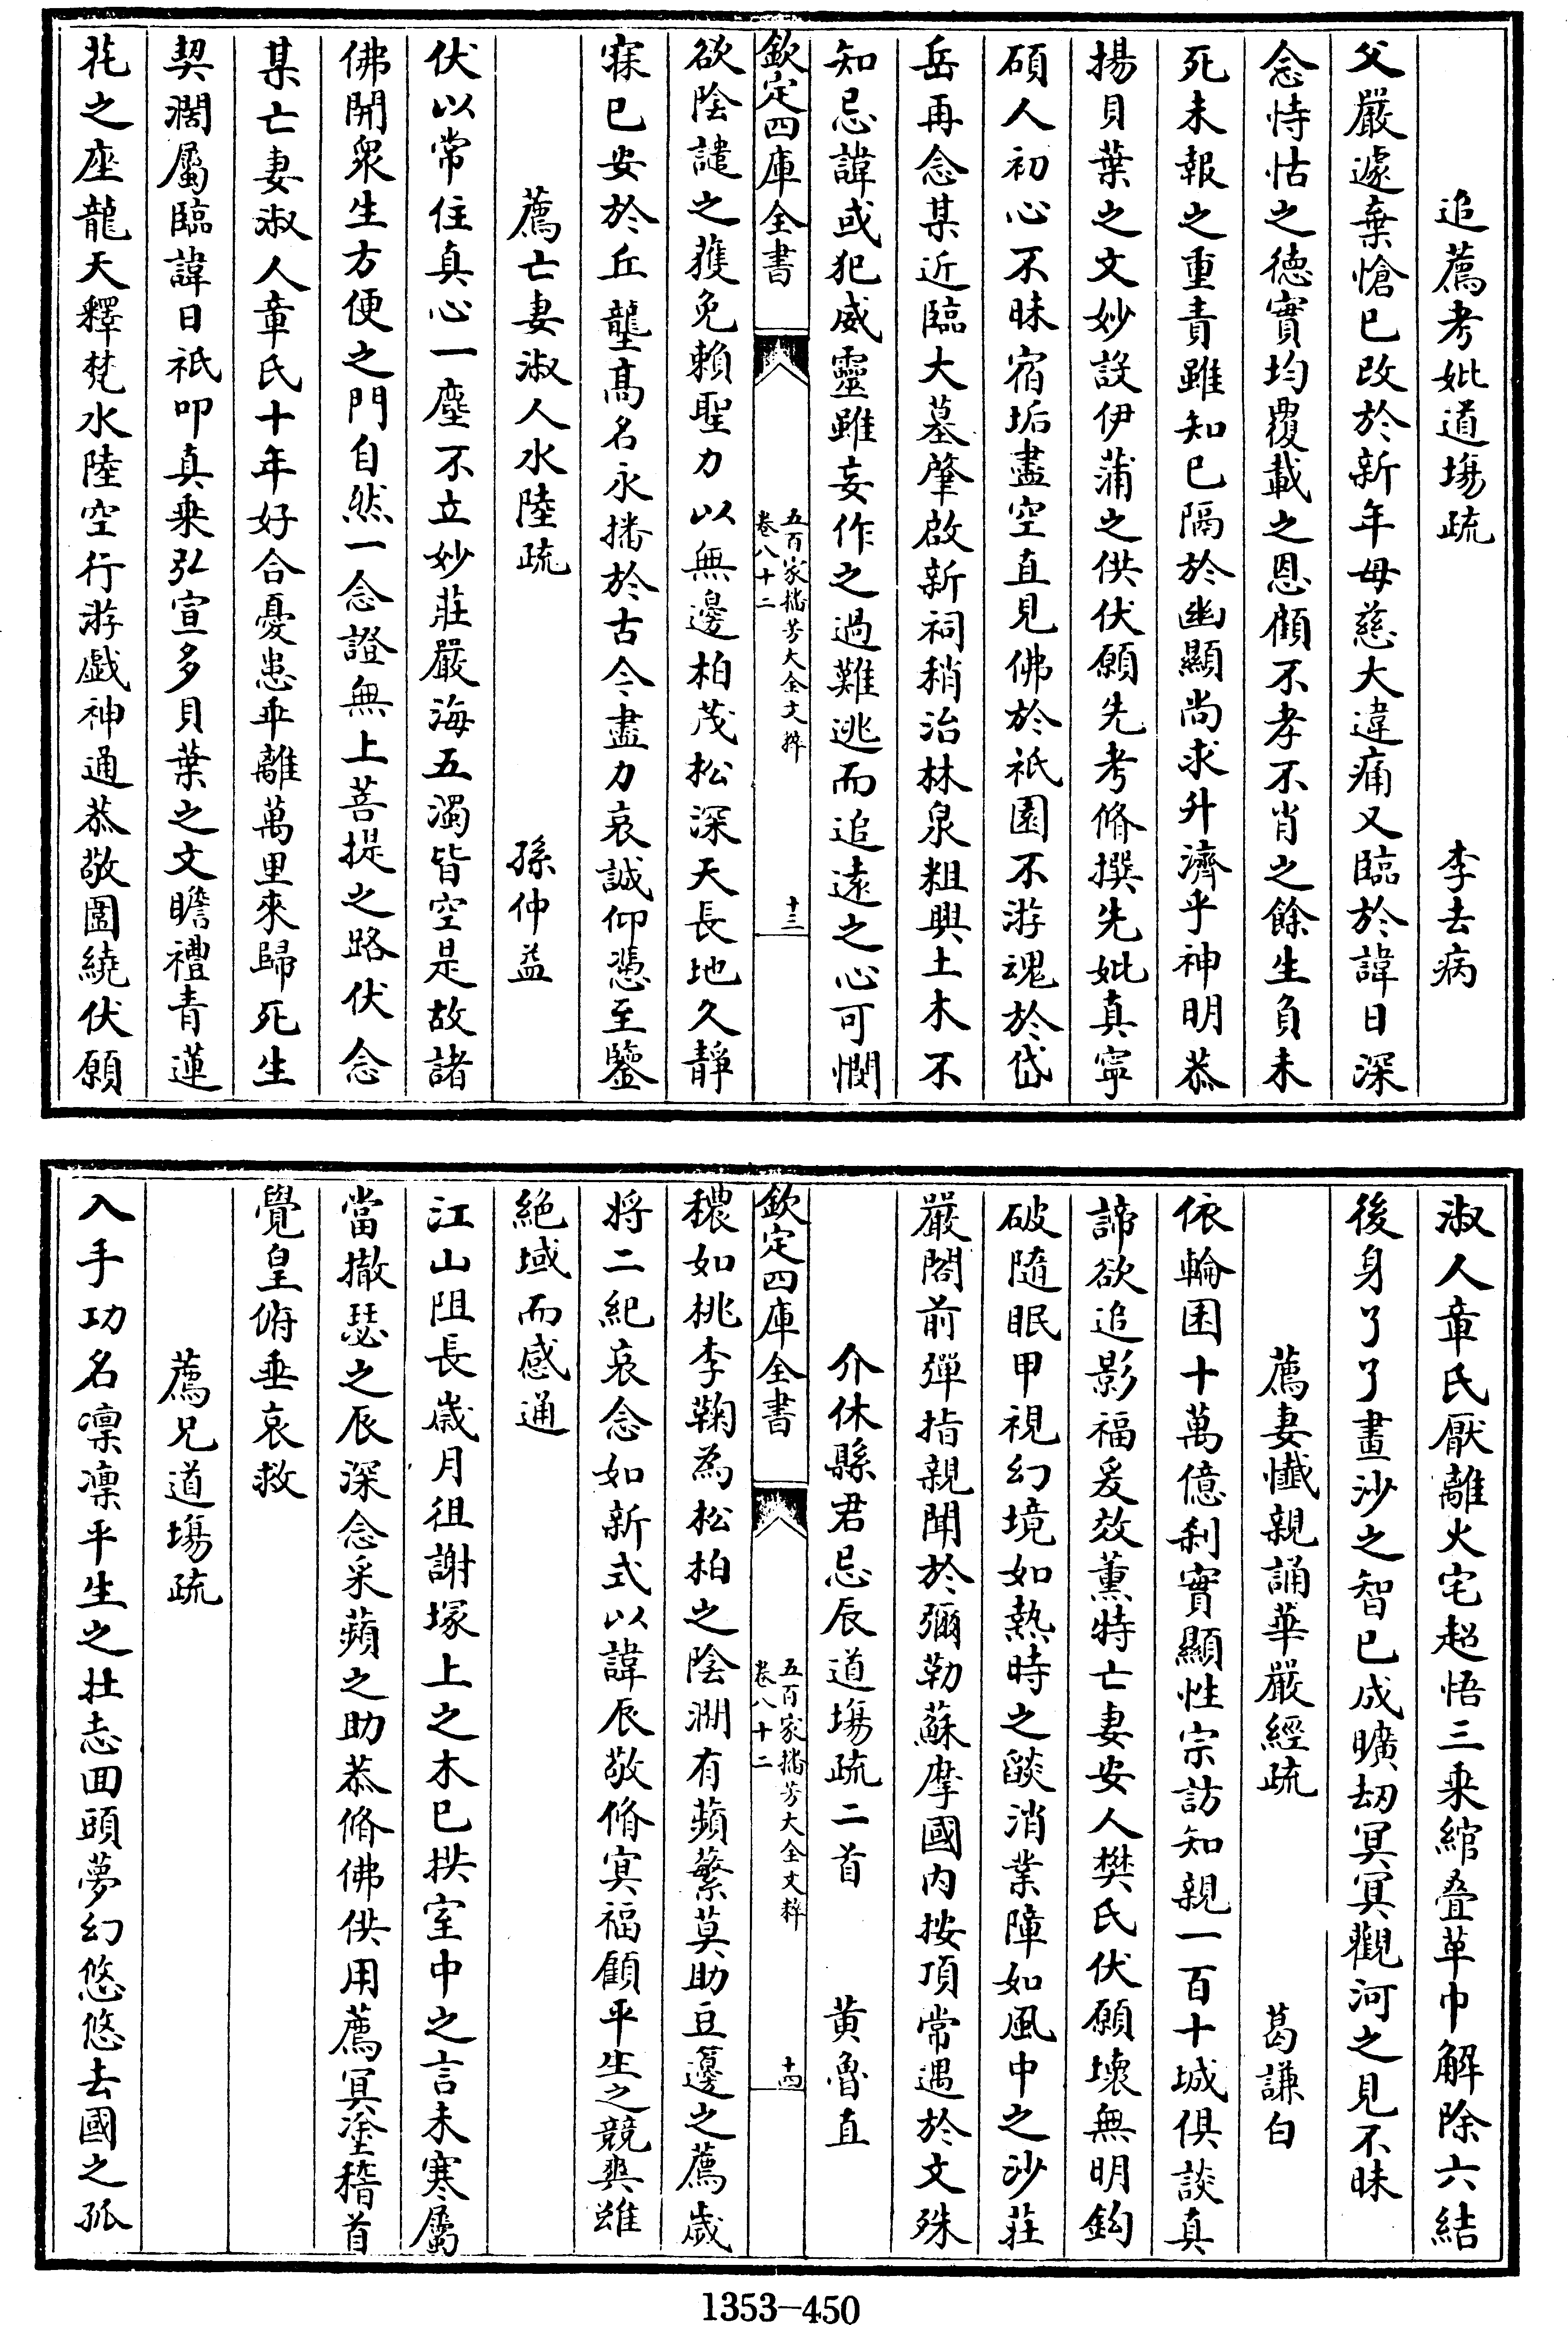 追薦考妣道場疏　李去病
父嚴遽棄愴已改於新年母慈大違痛又臨於諱日深
念恃怙之德實均覆載之恩顧不孝不肖之餘生負未
死未報之重責雖知已隔於幽顯尚求升濟乎神明恭
揚貝葉之文妙設伊蒲之供伏願先考脩撰先妣真寧
碩人初心不昧宿垢盡空直見佛於祇園不游魂於岱
岳再念某近臨大墓肇啟新祠稍治林泉粗興土木不
知忌諱或犯威靈雖妄作之過難逃而追遠之心可憫
欽定四庫全書　五百家播芳大全文粹　卷八十二　十三
欲陰譴之獲免賴聖力以無邊柏茂松深天長地久靜
寐已安於丘壟高名永播於古今盡力哀誠仰憑至鑒
薦亡妻淑人水陸疏　孫仲益
伏以常住真心一塵不立妙莊嚴海五濁皆空是故諸
佛開衆生方便之門自然一念證無上菩提之路伏念
某亡妻淑人章氏十年好合憂患乖離萬里來歸死生
契濶屬臨諱日祇叩真乘弘宣多貝葉之文瞻禮青蓮
花之座龍天釋梵水陸空行游戲神通恭敬圍繞伏願
淑人章氏厭離火宅超悟三乘綰叠革巾解除六結
後身了了畫沙之智已成曠刼冥冥觀河之見不昧
薦妻懺親誦華嚴經疏　葛謙白
依輪囷十萬億刹實顯性宗訪知親一百十城俱談真
諦欲追影福爰效薰特亡妻安人樊氏伏願壞無明鈎
破隨眠甲視幻境如熱時之燄消業障如風中之沙莊
嚴閣前彈指親聞於彌勒蘇摩國內按頂常遇於文殊
介休縣君忌辰道場疏二首　黄魯直
欽定四庫全書　五百家播芳大全文粹　卷八十二　十四
穠如桃李鞠為松柏之陰澗有蘋蘩莫助豆籩之薦歲
將二紀哀念如新式以諱辰敬脩㝠福顧平生之競爽雖
絶域而感通
江山阻長歲月徂謝塚上之木已拱室中之言未寒屬
當撤瑟之辰深念采蘋之助恭脩佛供用薦冥塗稽首
覺皇俯垂哀救
薦兄道場疏
入手功名凛凛平生之壯志回頭夢幻悠悠去國之孤
1353-450